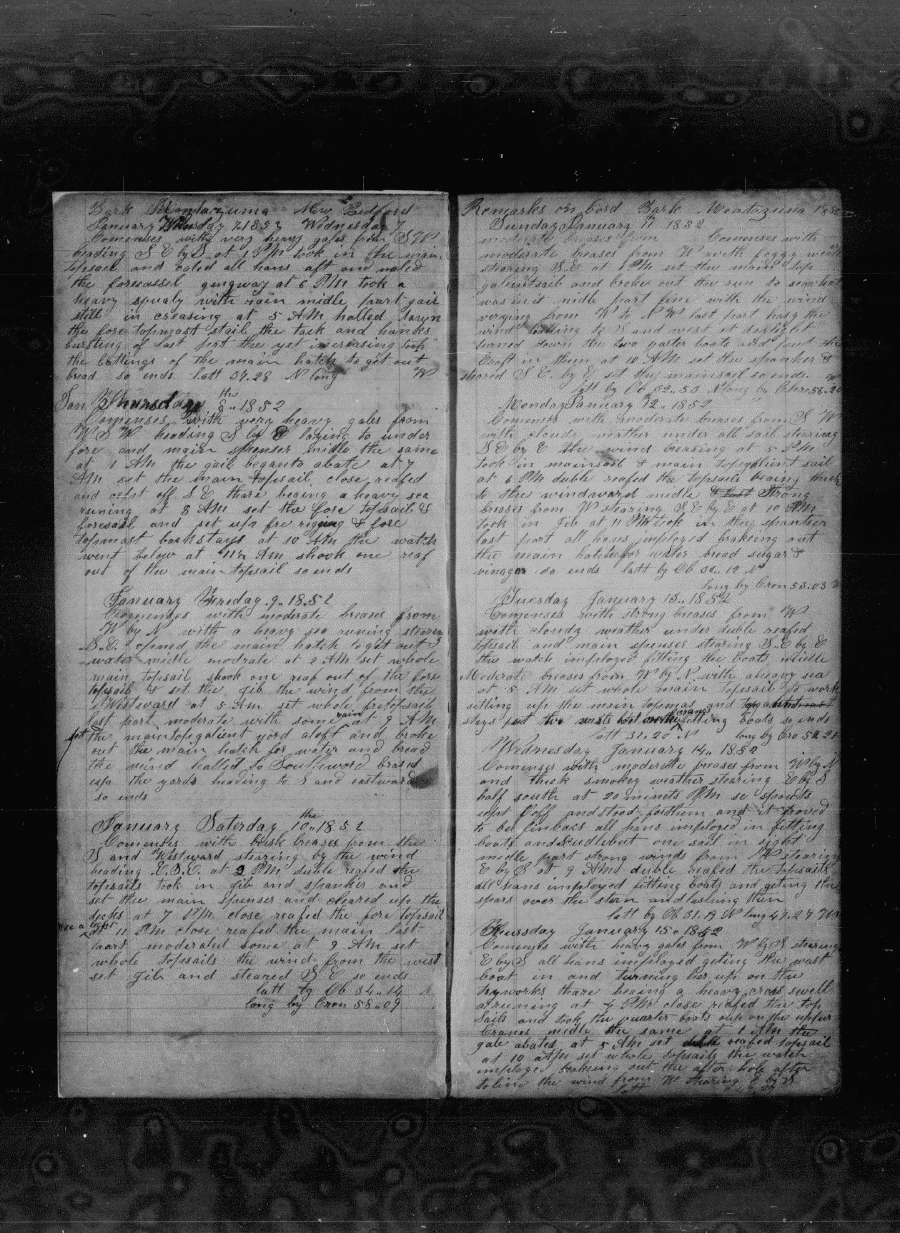 Bark Montazuma New Bedford
January Wensday 7 1852 Wednesday 7
Comenses with very heavy gales from S W
heading S E by S at 1 PM took in the main
topsail and caled all hans aft and
the forecassel gangway at 6 PM took a
heavy squaly with rain midle part gail
still in creasing at 5 AM halled
the fore topmast stail the tack and hanks
bursting of last part the yet increasing
the of the main hatch to get out
bread so ends latt 34.28 N long W
Jan Thursday 8th 1852
Comenses with very heavy gales from
W S W heading S by E laying to under
fore and main spenser midle the same
at 1 AM the gail began to abate at 7
AM set the main topsail close reafed
and celst off S E thare beaing a heavy sea
runing at 8 AM set the fore topsail &
foresail and set up fre riging & fore
topmast backstays at 10 AM the watch
went below at 11½ AM shook one reaf
out of the main topsail so ends
January Fryday 9. 1852
Comenses with moderate breases from
W by N with a heavy sea runing staring
S.E. opened the main hatch to get out
water midle modrate at 2 AM set whole
main topsail shook one reaf out of the fore
topsail & set the jib the wind from the
Westward at 5 AM set whole foretopsail
last part moderate with some rain at 9 AM
put the maintopgalient yard aloft and broke
out the main hatch for water and bread
the wind halled to Southward brased
up the yards heading to S and eastward
so ends
January Saterday 10th 1852
Comenses with brisk breases from the
S and Westward staring by the wind
heading E.S.E. at 2 PM duble reafed the
topsails took in jib and spanker and
set the main spenser and cleared up the
decks at 7 PM close reafed the fore topsail
at 11 PM close reafed the main last
part moderated some at 9 AM set
whole topsails the wind from the west
set jib and steared S E so ends
latt by Ob 34..14 N
long by Cron 58..09
Remarks on bord Bark Montazuma 1852
Sunday January 11 1852
moderate breases from Comenses with
moderate breases from W with foggy weth
staring S.E at 6 PM set the main top
galientsail and broke out the run to see what
was in it midle part fine with the wind
verging from W to N W last part hasy the
wind to S and west at daylight
turned down the two quarter boats and put the
Craft in them at 10 AM set the spanker &
stared S.E. by E set the mainsail so ends
latt by Ob 32..53 N long by Cbro 56..20
Monday January 12. 1852
Comenses with moderate breases from S W
with cloudy weather under all sail staring
S E by E the wind breasing at 5 PM
took in mainsail & main topgalient sail
at 6 PM duble reafed the topsails beaing thick
to the windward midle strong
breases from W staring S.E by E at 10 AM
took in jib at 11 PM took in the spanker
last part all hans imployed brakeing out
the main hatch for water bread sugar &
vinagar so ends latt by Ob 32..12 N
long by Cron 53.03 W
Tuesday January 13. 1852
Comenses with strong breases from W
with cloudy weather under duble reafed
topsail and main spenser staring S.E by E
the watch imployed fitting the boats midle
Moderate breases from W by N with aheavy sea
at 5 AM set whole main topsail to work
setting up the main topmas and
stays put the wast bot on the cranes fitting boats so ends
latt 31.20 N long by Cro 50.21
Wednesday January 14. 1852
Comenses with moderate breases from W by N
and thick smokey weather staring E by S
half south at 20 minets PM se spouts
cept off and stood for them and it proved
to be finbacs all hans imployed in fitting
boats and one sail in sight
midle part strong winds from W staring
E by S at 9 AM duble reafed the topsails
all hans imployed fitting boats and geting the
spars over the stern and lashing them
latt by Ob 31.19 N long 47.27 W
Thursday January 15. 1852
Comenses with heavy gales from W by S staring
E by S all hans imployed geting the wast
boat in and turning her up on the
tryworks thare beaing a heavy cross swell
a runing at 4 PM close reafed the top
sails and took the quarter boats up on the upper
Cranes midle the same at 1 AM the
gale abates at 5 AM set duble reafed topsail
at 10 AM set whole topsails the watch
imployed brakeing out the after hole after
the wind from W staring E by S
latt